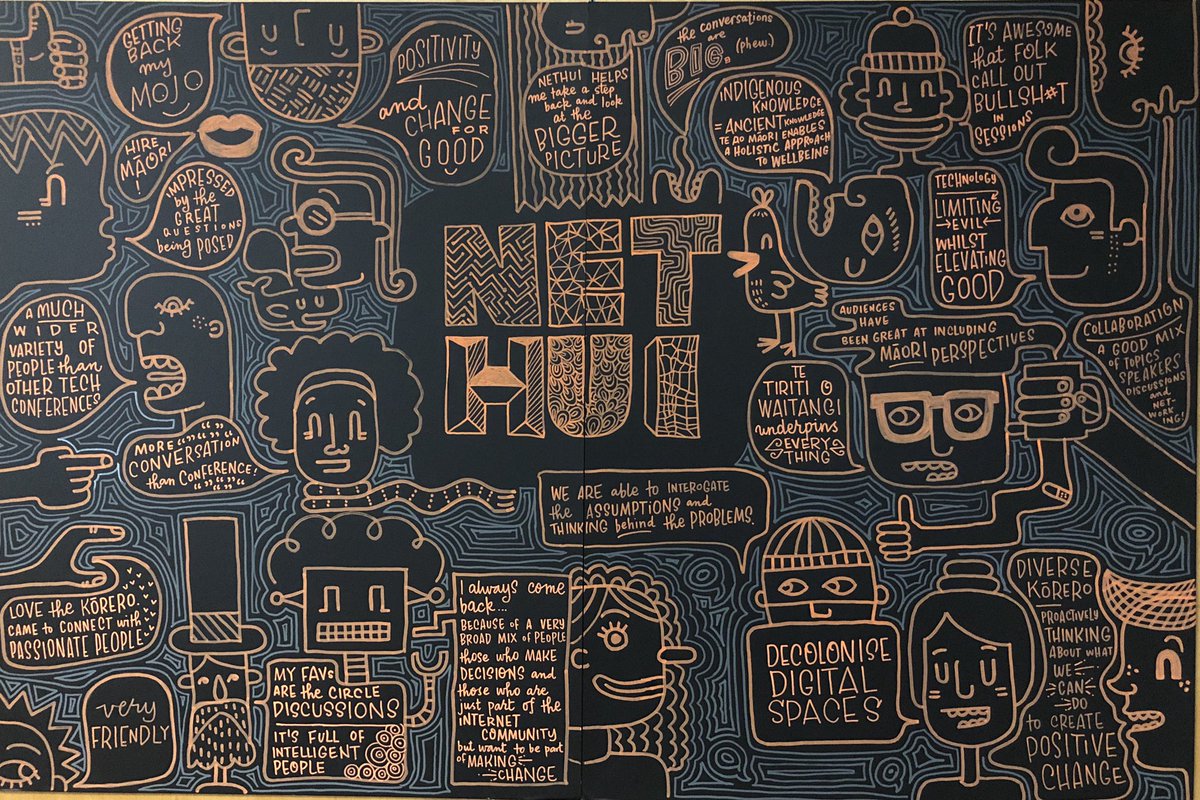 GETTING
BACK
my
MOJO
POSITIVITY
and
CHANGE
FOR
GOOD
NETHUI HELPS
me take a step
back and look
at the
BIGGER
PICTURE
the conversations
are
BIG.
(phew.)
INDIGENOUS
KNOWLEDGE
= ANCIENT KNOWLEDGE
TE AO MĀORI ENABLES
A HOLISTIC APPROACH
TO WELLBEING
IT'S AWESOME
that FOLK
CALL OUT
BULLSH#T
IN
SESSIONS
HIRE
MĀORI
!
IMPRESSED
by the
GREAT
QUESTIONS
being POSED
TECHNOLOGY
LIMITING
EVIL
WHILST
ELEVATING
GOOD
NET
HUI
A MUCH
WIDER
VARIETY OF
PEOPLE than
OTHER TECH
CONFERENCES
AUDIENCES
HAVE
BEEN GREAT AT INCLUDING
MĀORI PERSPECTIVES
COLLABORATION
A GOOD MIX
of TOPICS
SPEAKERS
DISCUSSIONS
and
NET-
WORKING!
TE
TIRITI O
WAITANGI
underpins
EVERY
THING
MORE
CONVERSATION
than CONFERENCE!
WE ARE able to INTEROGATE
the ASSUMPTIONS and
THINKING behind the PROBLEMS.
LOVE the KŌRERO.
CAME to CONNECT with
PASSIONATE PEOPLE
very
FRIENDLY
MY FAVs
ARE the CIRCLE
DISCUSSIONS
IT'S FULL OF
INTELLIGENT
PEOPLE
I always come
back...
BECAUSE OF A VERY
BROAD MIX OF PEOPLE
those who MAKE
DECISIONS and
those who are
just part of the
INTERNET
COMMUNITY
but want to be part
of MAKING
CHANGE
DECOLONISE
DIGITAL
SPACES
DIVERSE
KŌRERO
PROACTIVELY
THINKING
ABOUT WHAT
WE
CAN
DO
to CREATE
POSITIVE
CHANGE